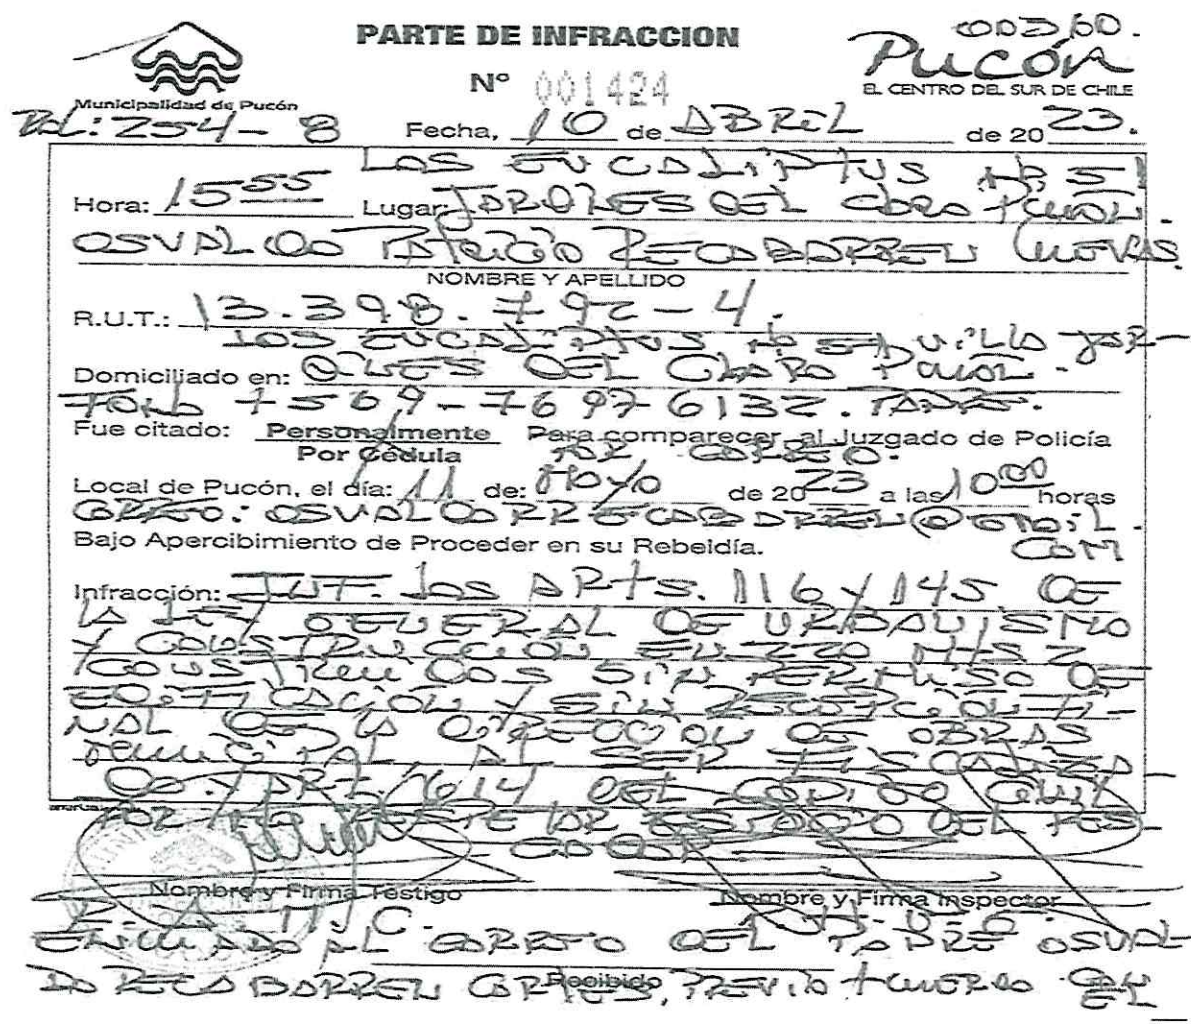 PARTE DE INFRACCION
Nº 001424
Municipalidad de Pucón
Pucón
EL CENTRO DEL SUR DE CHILE
Rol: 254-8
Fecha, 10 de ABRIL de 2023.
LOS EUCALIPTUS
Hora: 15 55 Lugar: DEL
OSVALDO PATRICIO RECABARREN CUEVAS.
NOMBRE Y APELLIDO
R.U.T.: 13.398.792-4.
LOS EUCALIPTUS VILLA JAR-
Domiciliado en: DINES DEL CLARO PUCON.
FONO +569-76976132. PADRE.
Fue citado: Personalmente Para comparecer al Juzgado de Policía
Por Cédula POR CORREO.
Local de Pucón, el día: 11 de: MAYO de 2023 a las 10 00 horas
CORREO: OSVALDORRECABARREN@GMAIL.
Bajo Apercibimiento de Proceder en su Rebeldía.
COM
Infracción: INF. LOS ARTS. 116 Y 145. DE
LA LEY GENERAL DE URBANISMO
Y CONSTRUCCION EN 220 MTS 2
CONSTRUIDOS SIN PERMISO DE
EDIFICACION Y SIN RECEPCION FI-
NAL DE LA DIRECCION DE OBRAS
MUNICIPAL AL SER FISCALIZA-
DO. Y ART. 1614 DEL CODIGO CIVIL
Nombre y Firma Testigo
Nombre y Firma Inspector
ENVIADO AL CORREO DEL PADRE OSVAL-
DO RECABARREN CORTES, PREVIO ACUERDO CON
EL
Recibido